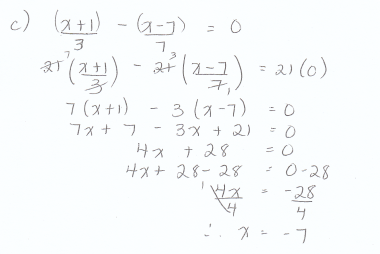 c) (x+1)/3 - (x-7)/7 = 0
21⁷((x+1)/3) - 21³((x-7)/7₁) = 21(0)
7(x+1) - 3(x-7) = 0
7x + 7 - 3x + 21 = 0
4x + 28 = 0
4x + 28 - 28 = 0 - 28
¹4x/4 = -28/4
∴ x = -7